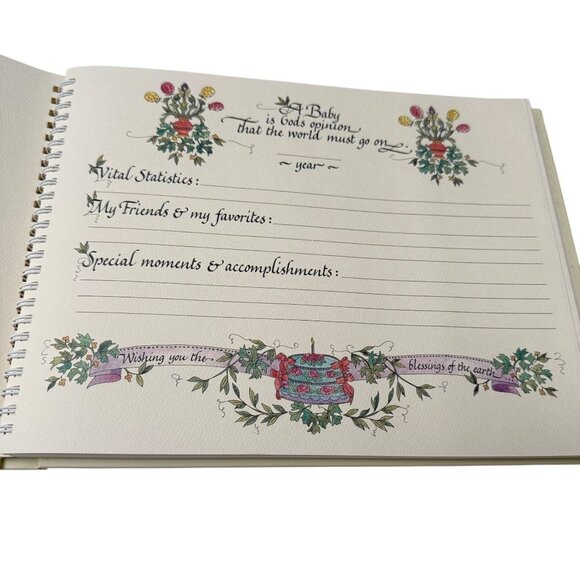 A Baby
is Gods opinion
That the world must go on...
~ year ~
Vital Statistics:
My Friends & my favorites:
Special moments & accomplishments:
Wishing you the blessings of the earth